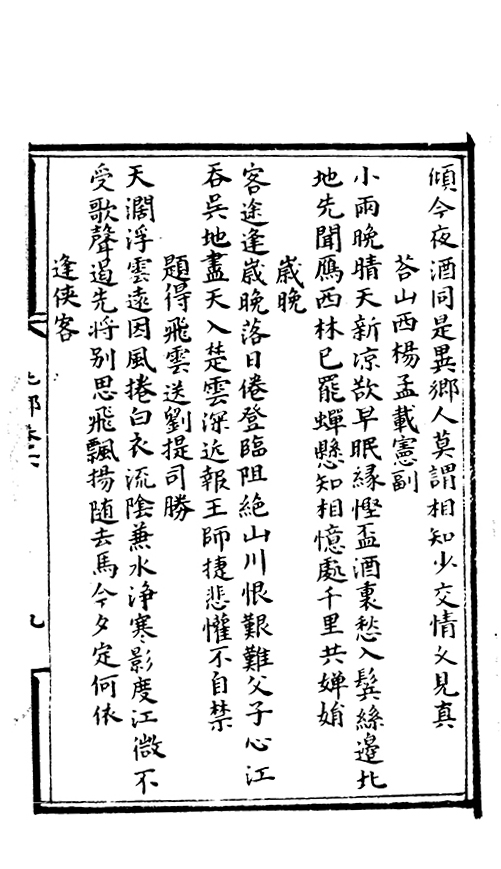 傾今夜酒同是異鄉人莫謂相知少交情久見真
荅山西楊孟載憲副
小雨晚晴天新凉欲早眠緣慳盃酒裏愁入鬂絲邊北
地先聞鴈西林已罷蟬懸知相憶處千里共嬋娟
嵗晚
客途逢嵗晚落日倦登臨阻絕山川恨艱難父子心江
吞吳地盡天入楚雲深近報王師捷悲懽不自禁
題得飛雲送劉提司勝
天濶浮雲遠因風捲白衣流陰兼水浄寒影度江微不
受歌聲遏先将别思飛飄揚随去馬今夕定何依
逢俠客
九